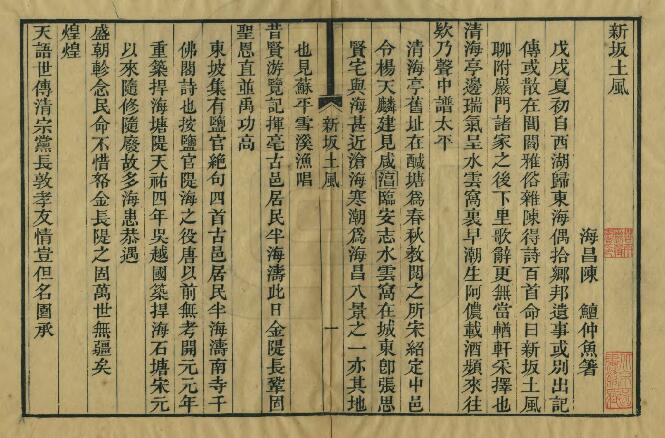 新坂土風
海昌陳　鱣仲魚著
戊戌夏初自西湖歸東海偶拾鄉邦遺事或別出記
傳或散在閭閻雅俗雜陳得詩百首命曰新坂土風
聊附嚴門諸家之後下里歌辭更無當輶軒采擇也
清海亭邊瑞氣呈水雲窩裏早潮生阿儂載酒頻來往
欸乃聲中譜太平
清海亭舊址在鹹塘爲春秋教閱之所宋紹定中邑
令楊天麟建見咸淳臨安志水雲窩在城東卽張思
賢宅與海甚近滄海寒潮爲海昌八景之一亦其地
新坂土風
一
也見蘇平雪溪漁唱
昔賢游覽記揮毫古邑居民半海濤此日金隄長鞏固
聖恩直並禹功高
東坡集有鹽官絕句四首古邑居民半海濤南寺千
佛閣詩也按鹽官隄海之役唐以前無考開元元年
重築捍海塘隄天祐四年吳越國築捍海石塘宋元
以來隨修隨廢故多海患恭遇
盛朝軫念民命不惜帑金長隄之固萬世無疆矣
煌煌
天語世傳清宗黨長敦孝友情豈但名園承